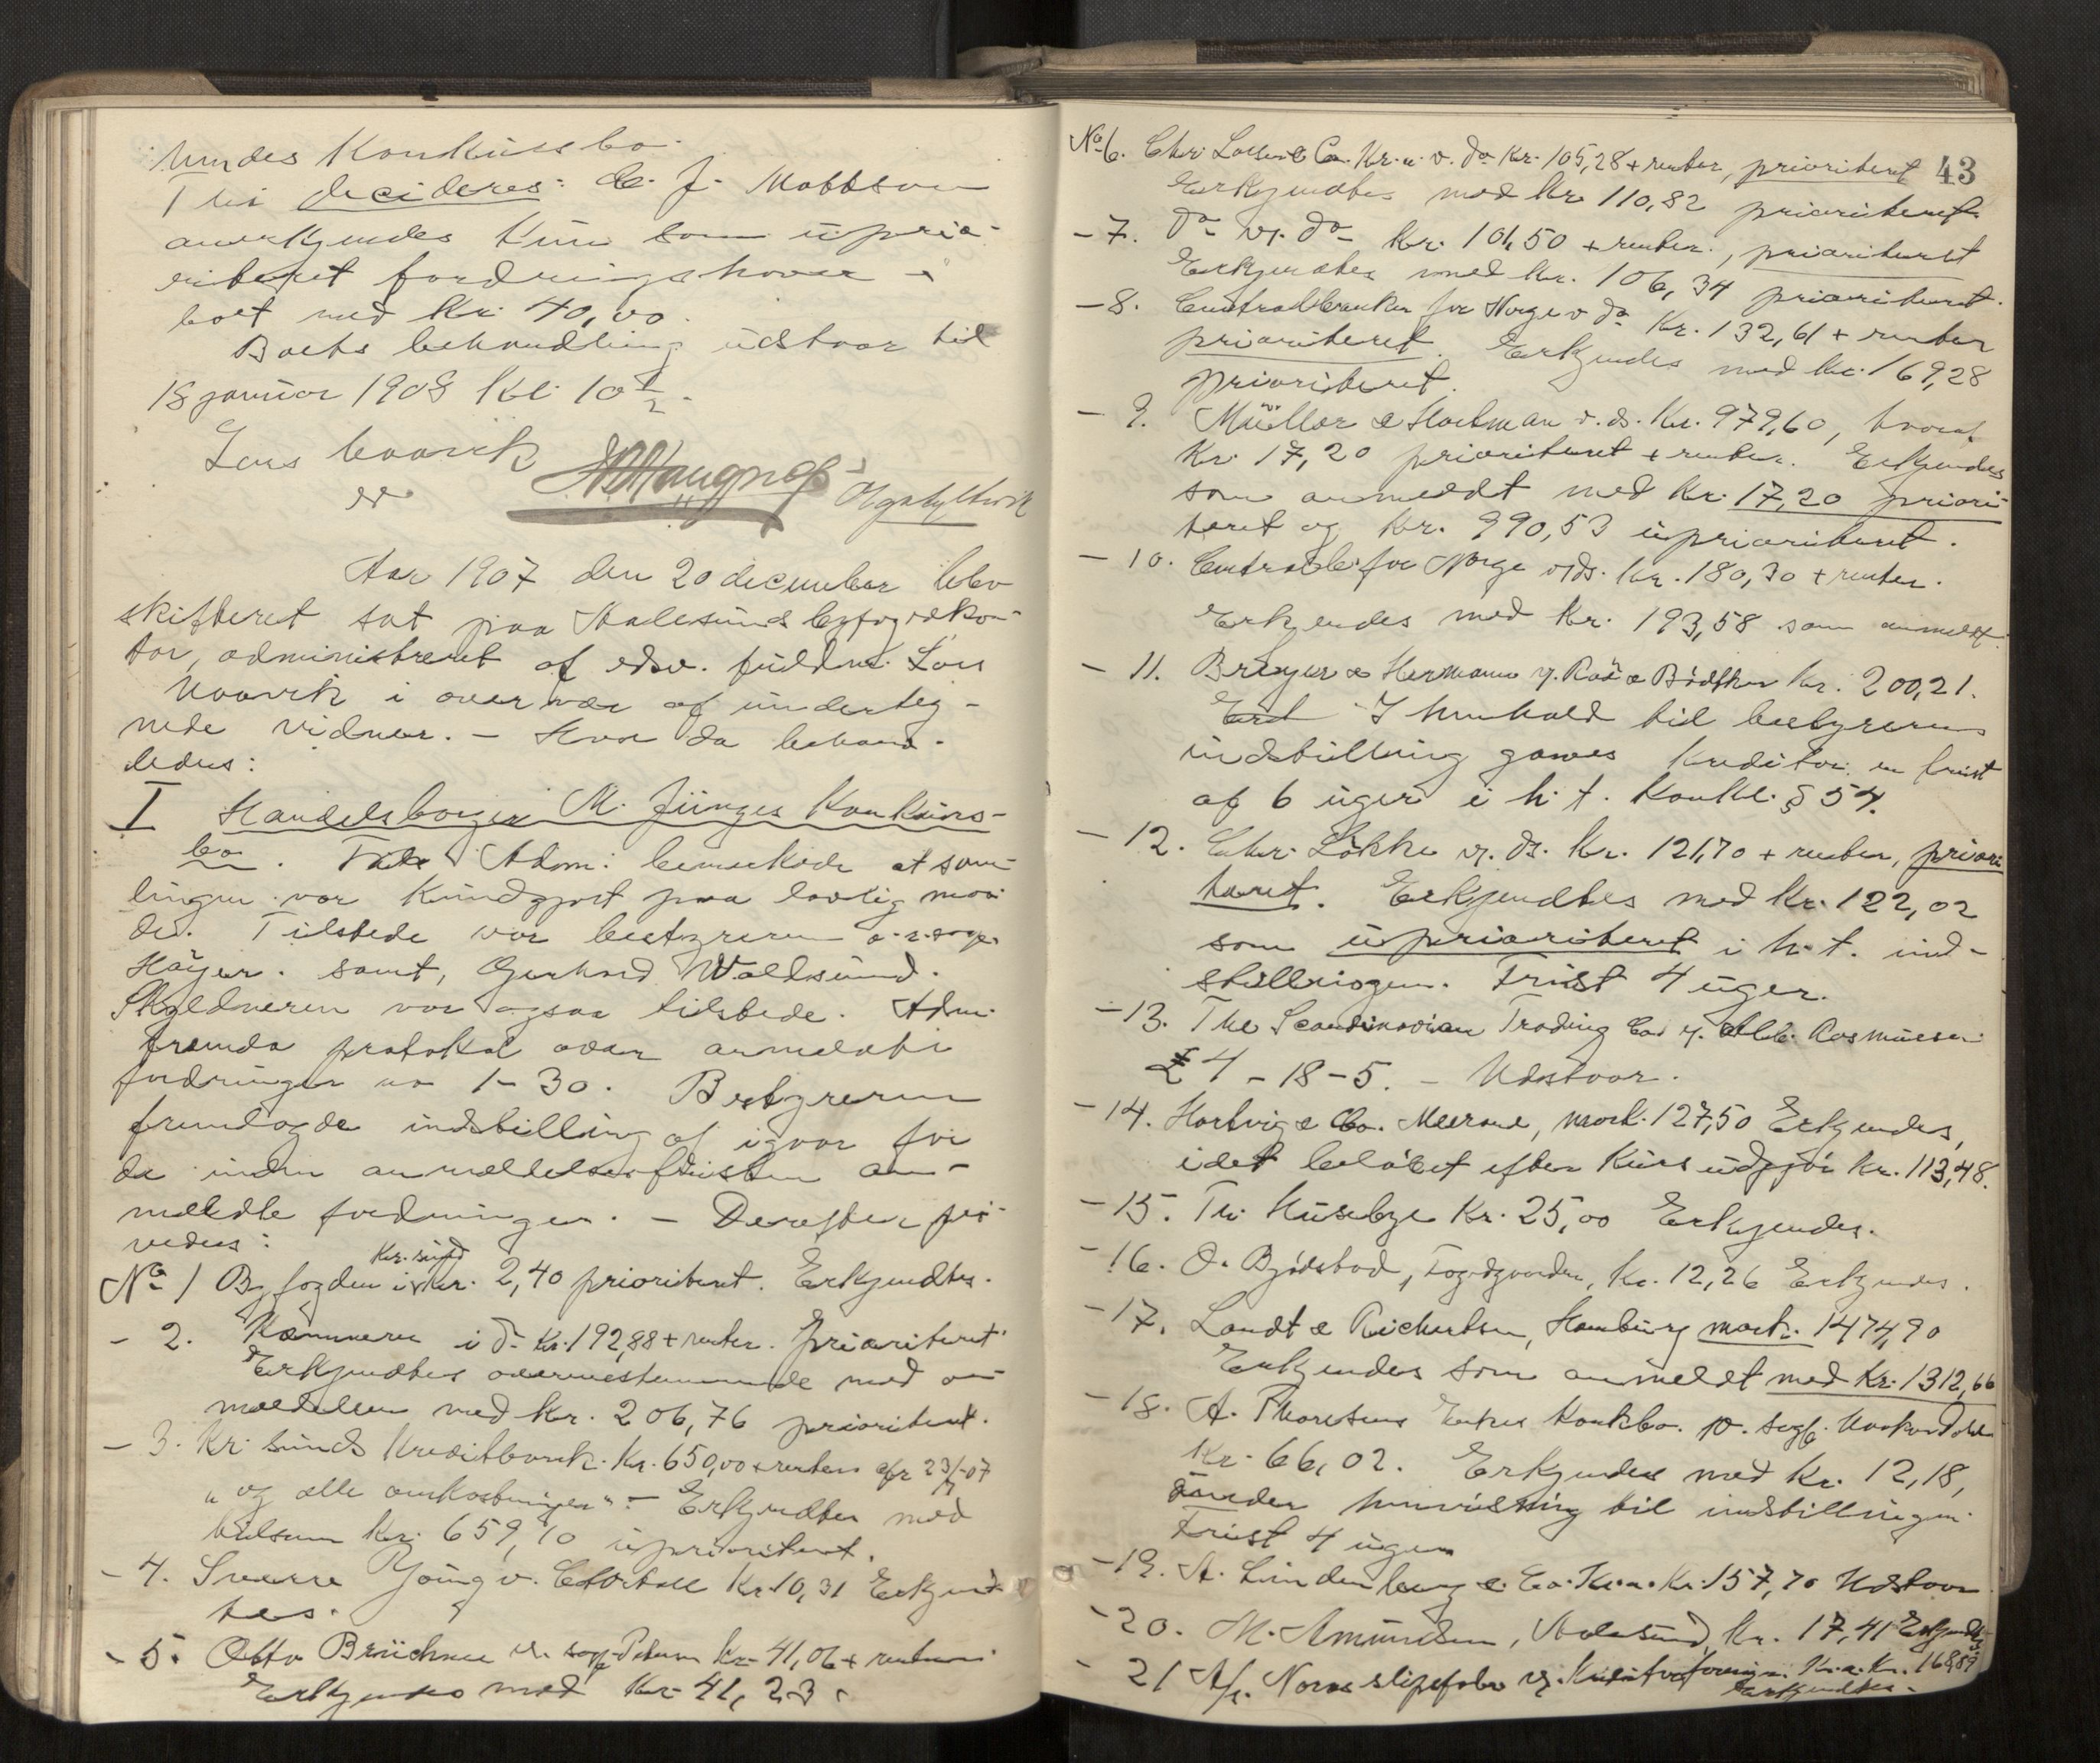 undes Konkursbo.
Thi decideres: C. J. Mattson
anerkjendes kun som uprio-
riteret fordringshaver i
boet med Kr. 40,00.
Boets behandling udstaar til
18 januar 1908 kl. 10 1/2.
Lars Vaavik
Aar 1907 den 20 december blev
skifteret sat paa Aalesunds byfogedkon-
tor, administreret af edsv. fuldm. Lars
Vaavik i overvær af underteg-
nede vidner. – Hvor da behand-
ledes:
I Handelsborger M. Jünges Konkurs-
bo. Adm. bemærkede at sam-
lingen var kundgjort paa lovlig maa-
de. Tilstede var bestyreren o.r.sagf.
Höyer. samt, Gerhard Waldsund.
Skyldneren var ogsaa tilstede. Adm.
fremla protokol over anmeldte
fordringer no 1–30. Bestyreren
fremlagde indstilling af igaar for
de inden anmeldelsesfristen an-
meldte fordringer. – Derefter prö-
vedes:
Kr.sund
No 1 Byfogden i Kr. 2,40 prioriteret. Erkjendtes.
– 2. Kæmneren i do Kr. 192,88 + renter. Prioriteret
Erkjendtes overensstemmende med an-
meldelsen med Kr. 206,76 prioriteret.
– 3. Kr.sunds Kreditbank. Kr. 650,00 + renter fr 23/-07
"og alle omkostninger". – Erkjendtes med
tilsam Kr. 659,10 uprioritert.
– 4. Sverre Young v. Kr. 10,31 Erkjend-
tes.
– 5. Otto Brüchner v. sagf. Kr. 41,06 + renter.
Erkjendes med Kr. 41,23.
43
No 6. Chr. Co. Kr.a. v. do Kr. 105,28 + renter, prioriteret
Erkjendtes med Kr. 110,82 prioriteret.
– 7. do v. do Kr. 101,50 + renter., prioriteret
Erkjendtes med Kr. 106,34 prioriteret.
– 8. Centralbanken for Norge v do Kr. 132,61 + renter
prioriteret. Erkjendes med Kr. 169,28
prioriteret.
– 9. Müller & Hartman v. ds. Kr. 979,60, hvoraf
Kr. 17,20 prioriteret + renter. Erkjendes
som anmeldt med Kr. 17,20 priori-
teret og Kr. 990,53 uprioriteret.
– 10. Centralb. for Norge v/ds. Kr. 180,30 + renter.
Erkjendes med Kr. 193,58 som anmeldt.
– 11. Breyer & Hermann v. Kr. 200,21.
I henhold til bestyrerens
indstilling gaves kreditor en frist
af 6 uger i h. t. Konkl. § 54.
– 12. Chr. Løkke v. ds. Kr. 121,70 + renter, priori
teret. Erkjendtes med Kr. 122,02
som uprioriteret i h. t. ind-
stillingen. Frist 4 uger.
– 13. The Scandinavian Trading Co v. Rasmussen
£ 4 – 18 – 5. – Udstaar.
– 14. Hartvig & Co. Meerane, mark. 127,50 Erkjendes,
idet belöbet efter kurs udgjör Kr. 113,48.
– 15. Th. Huseby Kr. 25,00 Erkjendes.
– 16. O. Bjödstad, Fogdgaarden, Kr. 12,26 Erkjendes.
– 17. Landt & Richertsen, Hamburg mark. 1474,90
Erkjendes som anmeldt med Kr. 1312,66
– 18. A. Thoresens Enkes Konkbo. sagf.
Kr. 66,02. Erkjendes med Kr. 12,18,
under henvisning til indstillingen.
Frist 4 uger
– 19. A. Lindenberg & Co. Kr.a. Kr. 157,70 Udstaar
– 20. M. Amundsen, Aalesund, Kr. 17,41 Erkjendtes
– 21 A/s. Norsk slipefabr v. Kr.a. Kr. 168,89
Erkjendtes.